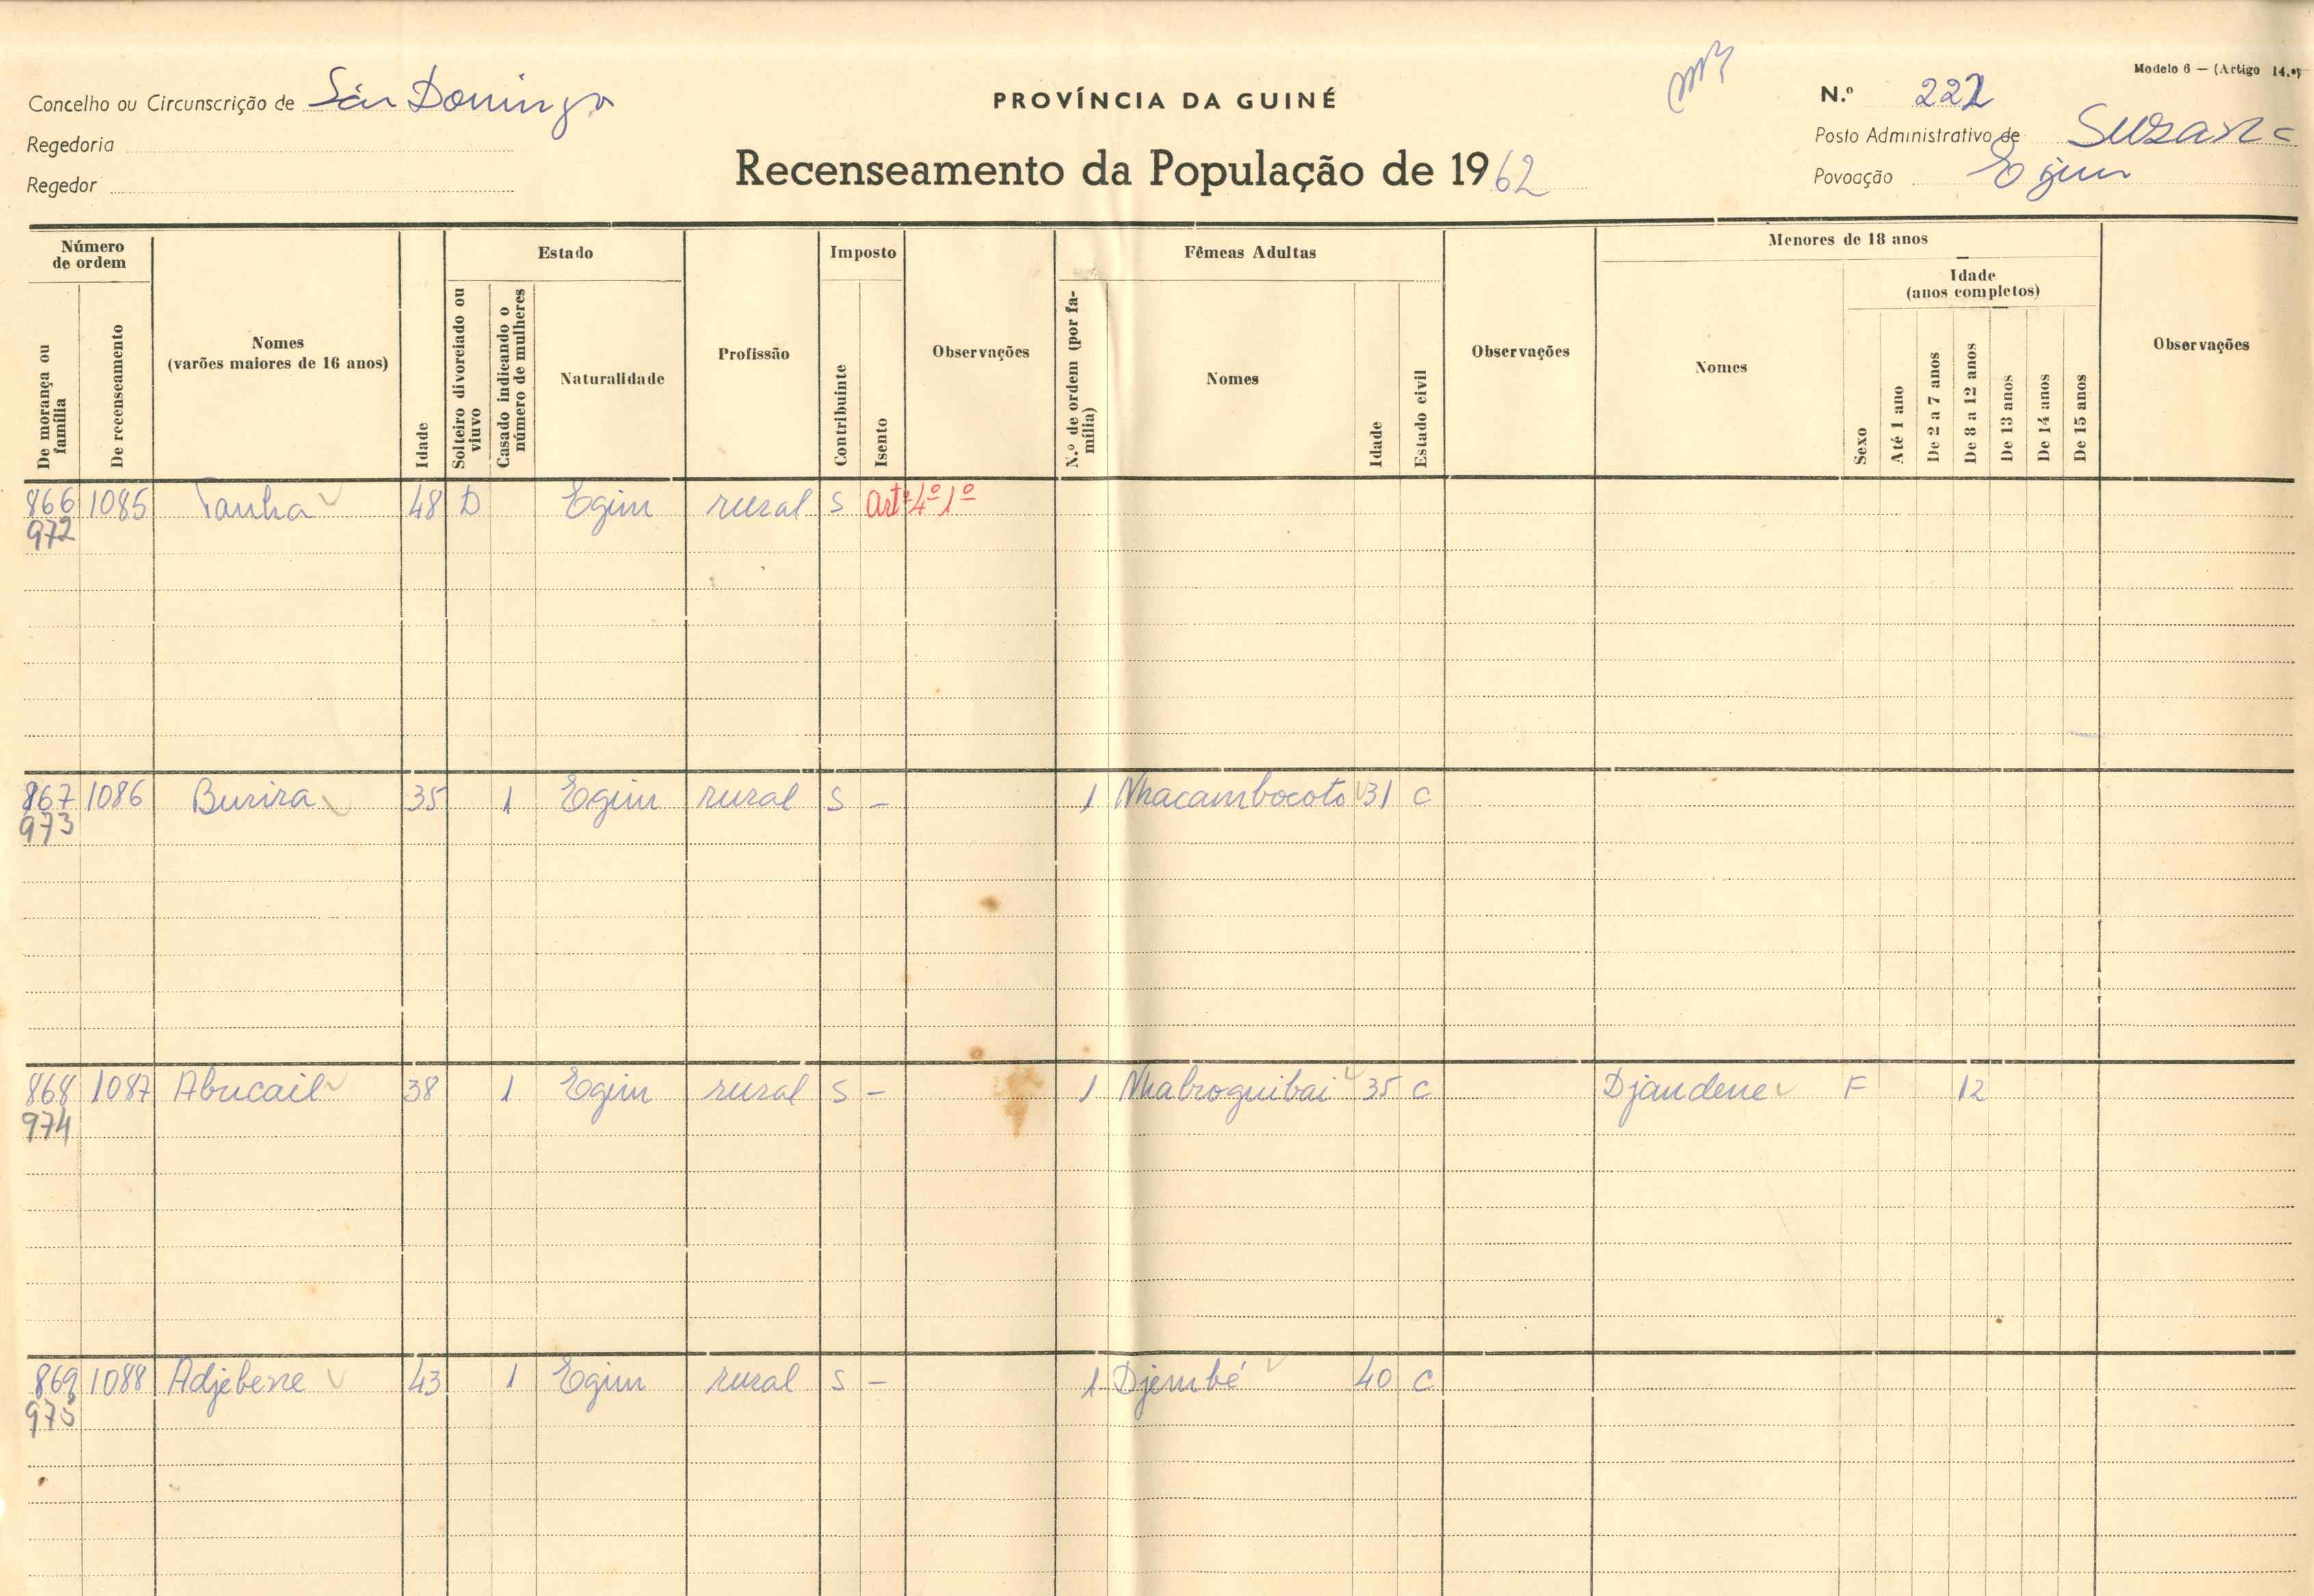 Modelo 6 — (Artigo 14.º)
Concelho ou Circunscrição de São Domingos
PROVÍNCIA DA GUINÉ
N.º 222
Regedoria
Posto Administrativo de Suzana
Regedor
Recenseamento da População de 1962
Povoação Egim
Número de ordem
De morança ou família
De recenseamento
Nomes
(varões maiores de 16 anos)
Idade
Estado
Solteiro divorciado ou viuvo
Casado indicando o número de mulheres
Naturalidade
Profissão
Imposto
Contribuinte
Isento
Observações
Fêmeas Adultas
N.º de ordem (por família)
Nomes
Idade
Estado civil
Observações
Menores de 18 anos
Nomes
Sexo
Idade
(anos completos)
Até 1 ano
De 2 a 7 anos
De 8 a 12 anos
De 13 anos
De 14 anos
De 15 anos
Observações
866 1085 Tanha 48 D Egim rural S artº 4º 1º
972
867 1086 Burira 35 1 Egim rural S - 1 Nhacambocoto 31 C
973
868 1087 Abucail 38 1 Egim rural S - 1 Nhabroguibai 35 C Djandene F 12
974
869 1088 Adjebene 43 1 Egim rural S - 1 Djembé 40 C
975